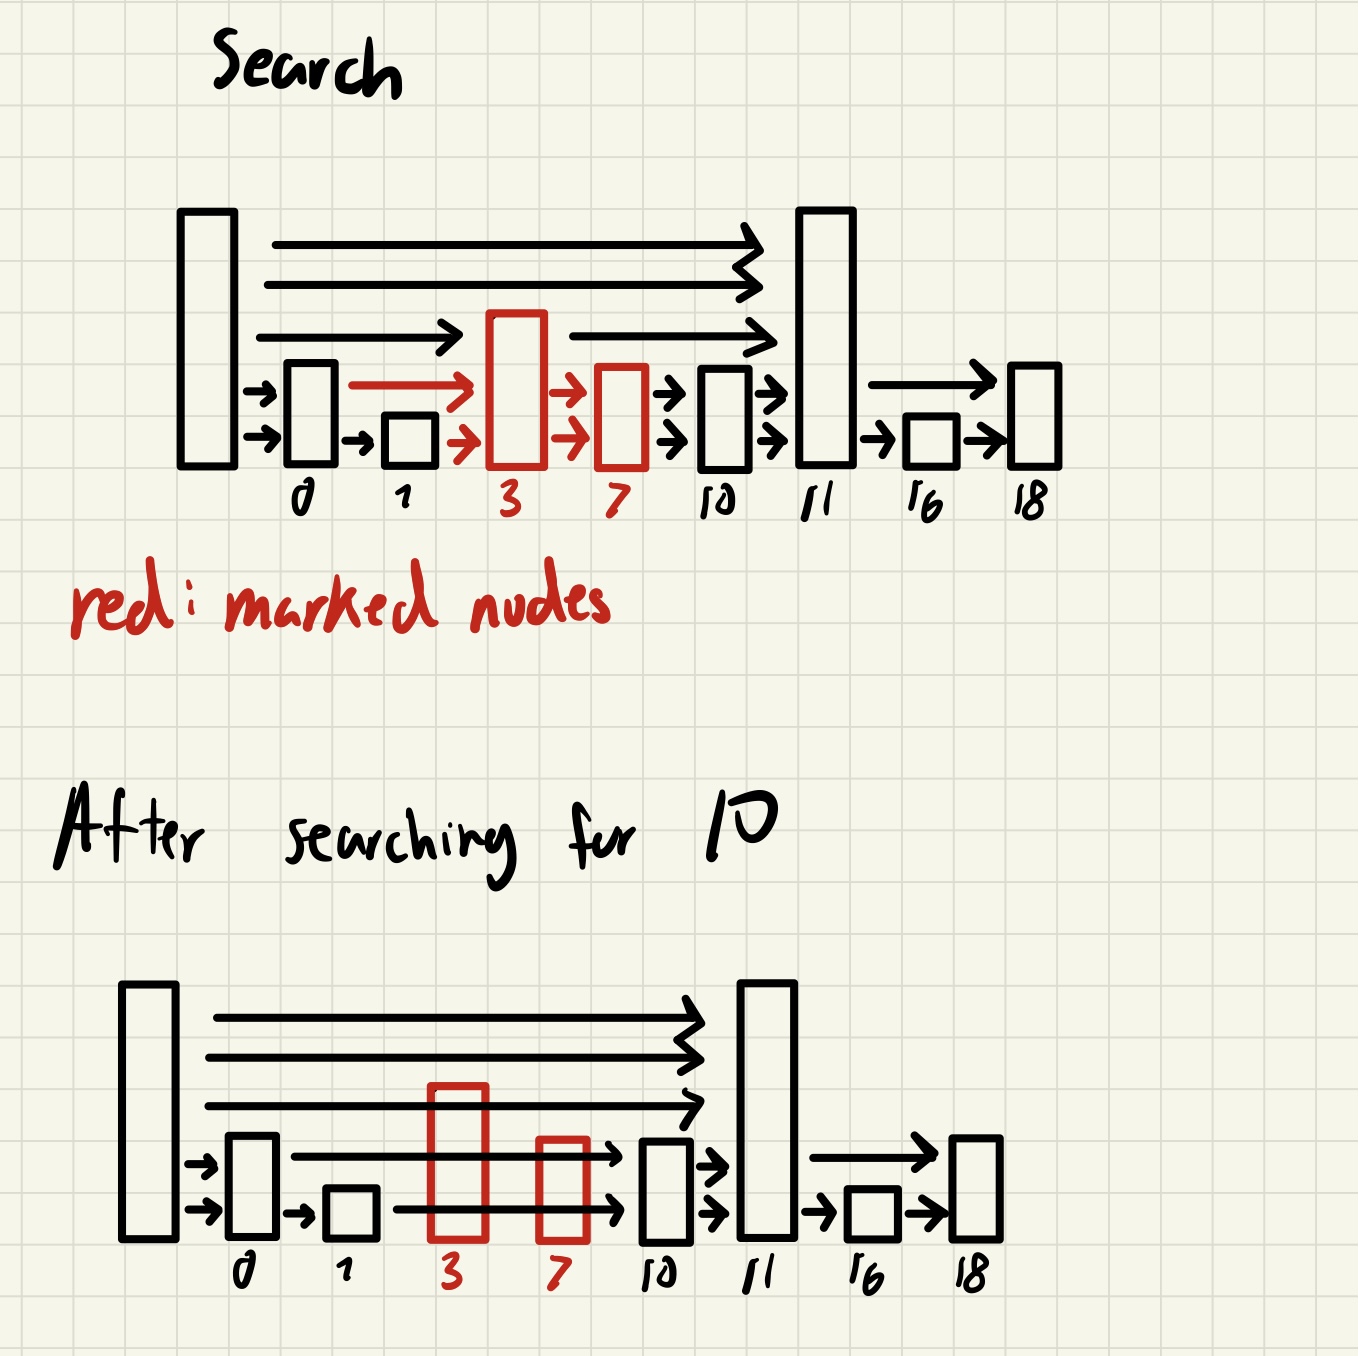 Search
0 1 3 7 10 11 16 18
red: marked nodes
After searching for 10
0 1 3 7 10 11 16 18